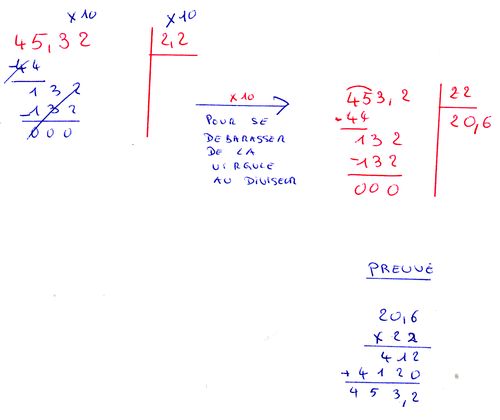 x10 x10
45,32 2,2
-44
132
-132
000
x10
POUR SE
DEBARASSER
DE LA
VIRGULE
AU DIVISEUR
453,2 22
-44 20,6
132
-132
000
PREUVE
20,6
x 22
412
+ 4120
453,2